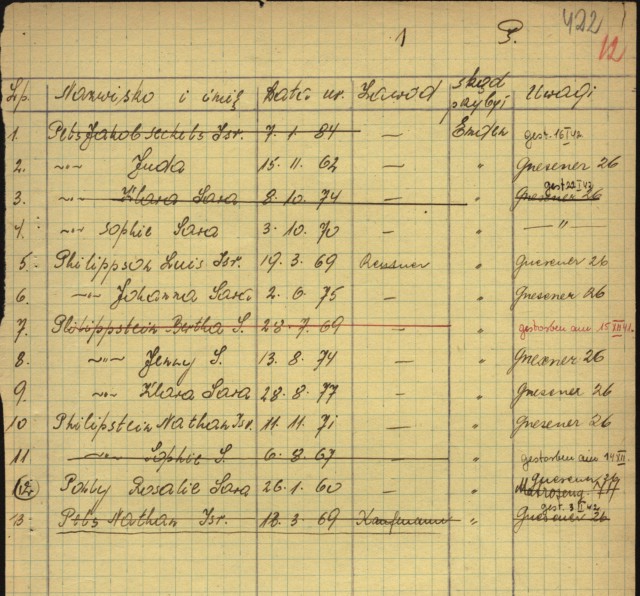 422
1 P. 12
Lp. Nazwisko i imię Data ur. Zawód skąd przybył Uwagi
1. Pels Jakob Isr. 7. 1. 84 — Emden gest. 16 I 42
2. -"- Juda 15. 11. 62 — " Gnesener 26
3. -"- Klara Sara 8. 10. 74 — " gest 22 I 42 Gnesener 26
4. -"- Sophie Sara 3. 10. 70 — " — " —
5. Philippson Luis Isr. 19. 3. 69 Rentner " Gnesener 26
6. -"- Johanna Sara 2. 6. 75 — " Gnesener 26
7. Philippstein Bertha S. 28. 7. 69 — " gestorben am 15 XII 41.
8. -"- Jenny S. 13. 8. 74 — " Gnesener 26
9. -"- Klara Sara 28. 8. 77 — " Gnesener 26
10 Philipstein Nathan Isr. 11. 11. 71 — " Gnesener 26
11 -"- Sophie S. 6. 8. 67 — " gestorben am 14 XII.
12. Rosalie Sara 26. 1. 60 — " Gnesener 26
13. Pels Nathan Isr. 18. 3. 69 Kaufmann " gest. 3 II 42 Gnesener 26